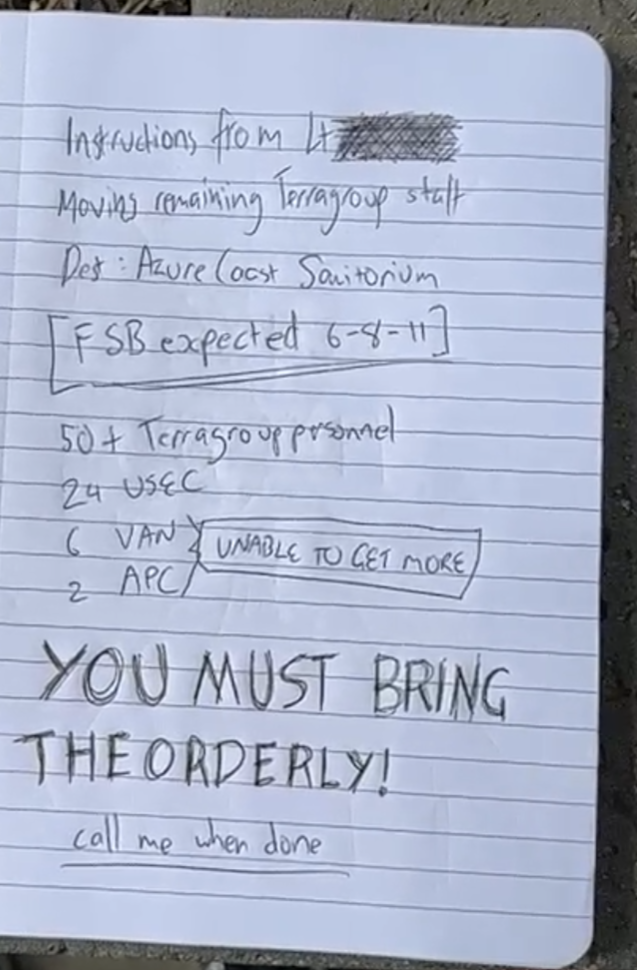 Instructions from Lt
Moving remaining Terragroup staff
Des: Azure Coast Sanitorium
[FSB expected 6-8-11]
50+ Terragroup personnel
24 USEC
6 VAN
UNABLE TO GET MORE
2 APC
YOU MUST BRING
THE ORDERLY!
call me when done